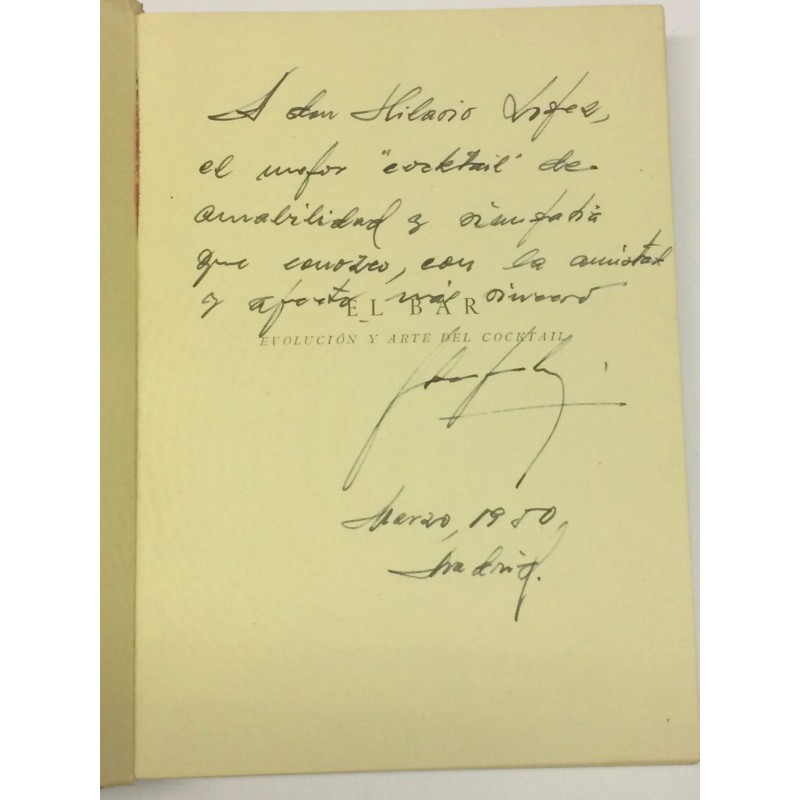 A don Hilario López,
el mejor "cocktail" de
amabilidad y simpatía
que conozco, con la amistad
y afecto más sincero
EL BAR
EVOLUCIÓN Y ARTE DEL COCKTAIL
Marzo, 1950
Madrid.